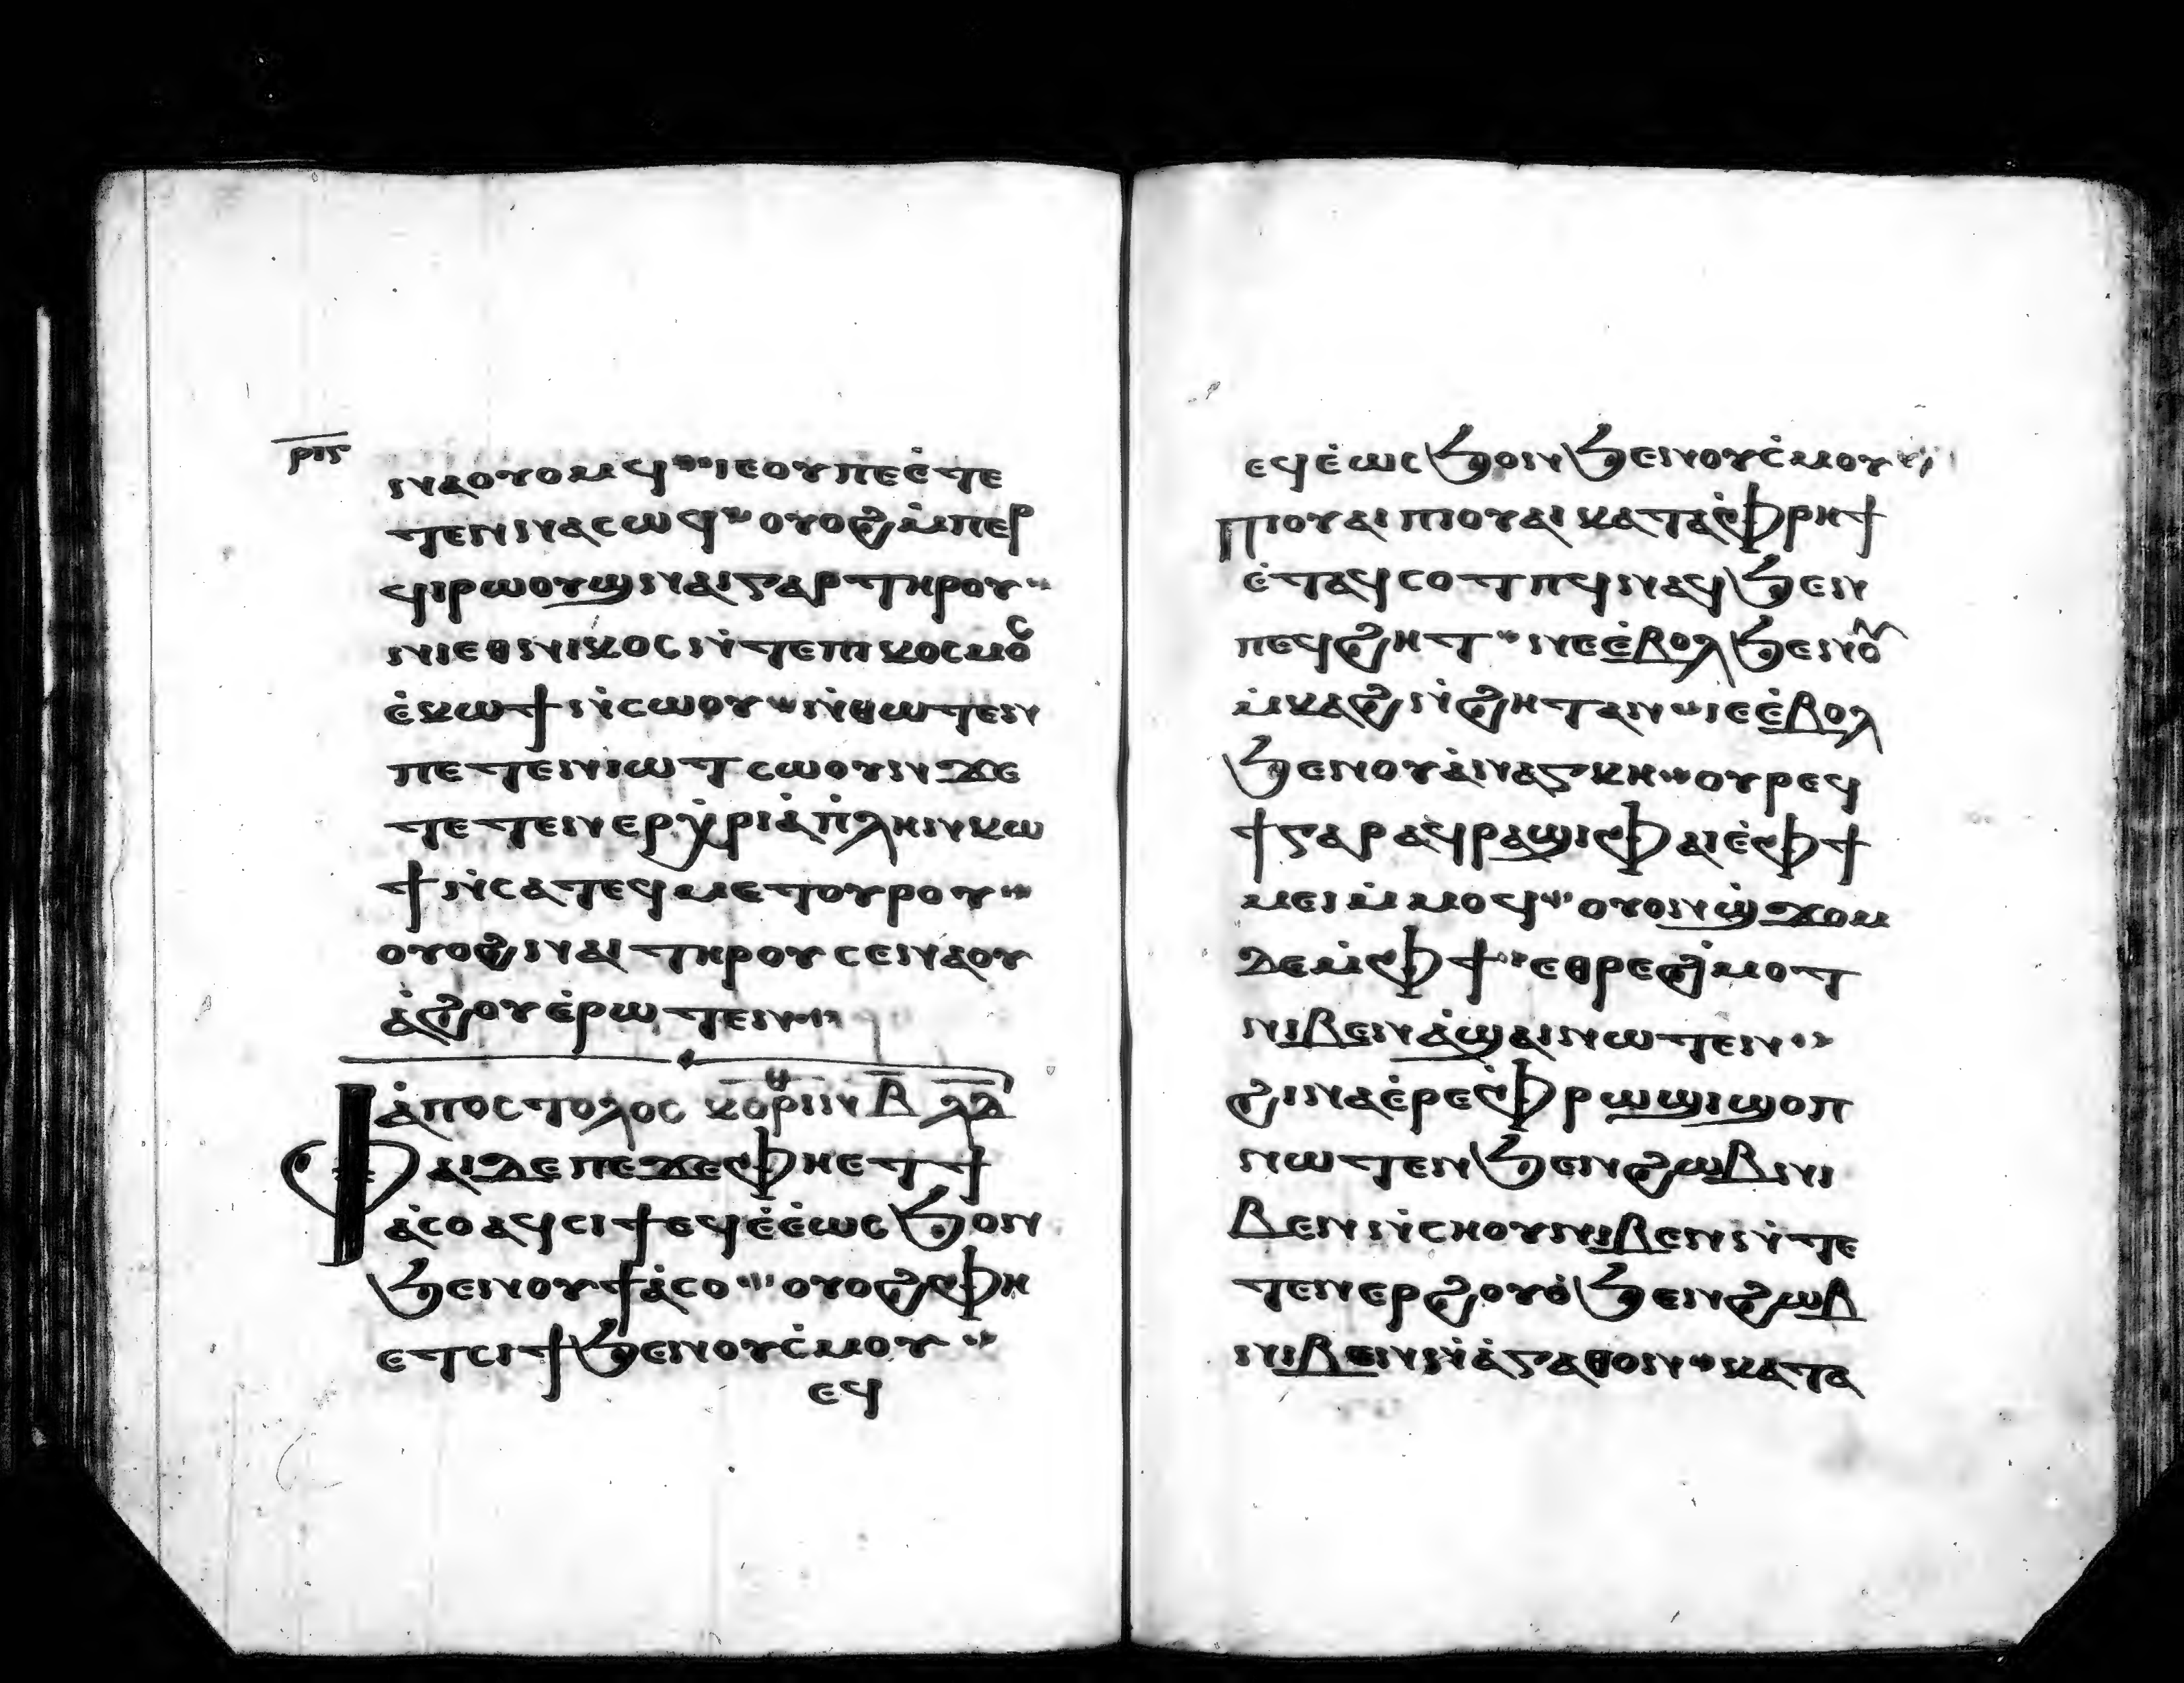 ⲣⲓⲋ
ⲛⲁⲟⲩⲟⲙϥ ⲓⲉ ⲟⲩ ⲡⲉ ⲉ̇ⲧⲉ
ⲧⲉⲛⲛⲁⲥⲱϥ ⲟⲩⲟϩ ⲙ̇ⲡⲉⲣ
ϥⲓⲣⲱⲟⲩϣ ⲛⲁⲓ ⲅⲁⲣ ⲧⲏⲣⲟⲩ
ⲛⲓⲉⲑⲛⲓⲕⲟⲥ ⲛ̇ⲧⲉ ⲡⲓⲕⲟⲥⲙⲟⲥ
ⲉ̇ⲕⲱϯ ⲛ̇ⲥⲱⲟⲩ ⲛ̇ⲑⲱⲧⲉⲛ
ⲡⲉⲧⲉⲛⲓⲱⲧ ⲥⲱⲟⲩⲛ ϫⲉ
ⲧⲉⲧⲉⲛⲉⲣⲭ̇ⲣⲓⲁ̇ ⲡ̇ⲗⲏⲛ ⲕⲱ
ϯ ⲛ̇ⲥⲁ ⲧⲉϥⲙⲉⲧⲟⲩⲣⲟⲩ
ⲟⲩⲟϩ ⲛⲁⲓ ⲧⲏⲣⲟⲩ ⲥⲉⲛⲁⲟⲩ
ⲁ̇ϩⲟⲩ ⲉ̇ⲣⲱⲧⲉⲛ
ⲁ̇ⲡⲟⲥⲧⲟⲗⲟⲥ ⲕⲟⲣⲓⲛⲑ ⲃ̅ ⲗ̅ⲇ̅
ⲫⲁⲓ ⲇⲉ ⲡⲉ ϫⲉ ⲫⲏ ⲉⲧϯ
ⲁ̇ⲥⲟ ⲁϥⲥⲓϯ ⲉϥⲉ̇ⲉ̇ⲱⲥϧ ⲟⲛ
ϧⲉⲛ ⲟⲩϯⲁ̇ⲥⲟ ⲟⲩⲟϩ ⲫⲏ
ⲉⲧⲥⲓϯ ϧⲉⲛ ⲟⲩⲥ̇ⲙⲟⲩ
ⲉϥ
ⲉϥⲉ̇ⲱⲥϧ ⲟⲛ ϧⲉⲛ ⲟⲩⲥ̇ⲙⲟⲩ
ⲡⲓⲟⲩⲁⲓ ⲡⲓⲟⲩⲁⲓ ⲕⲁⲧⲁ ⲫ̇ⲣⲏϯ
ⲉ̇ⲧⲁϥⲥⲟⲧⲡϥ ⲛⲁϥ ϧⲉⲛ
ⲡⲉϥϩⲏⲧ ⲛⲉ ⲉ̇ⲃⲟⲗ ϧⲉⲛ ⲟⲩ
ⲙ̇ⲕⲁϩ ⲛ̇ϩⲏⲧ ⲁⲛ ⲓⲉ ⲉ̇ⲃⲟⲗ
ϧⲉⲛ ⲟⲩⲁ̇ⲛⲁⲅⲕⲏ ⲟⲩⲣⲉϥ
ϯ ⲅⲁⲣ ⲁϥⲣⲁϣⲓ ⲫⲁⲓ ⲉ̇ ⲫϯ
ⲙⲉⲓ ⲙ̇ⲙⲟϥ ⲟⲩⲟⲛϣ̇ϫⲟⲙ
ⲇⲉ ⲙ̇ⲫϯ ⲉⲑⲣⲉ ϩ̇ⲙⲟⲧ
ⲛⲓⲃⲉⲛ ⲁ̇ϣⲁⲓ ⲛⲱⲧⲉⲛ
ϩⲓⲛⲁ ⲉ̇ⲣⲉ ⲫ̇ⲣⲱϣⲓ ϣⲟⲡ
ⲛⲱⲧⲉⲛ ϧⲉⲛ ϩⲱⲃ ⲛⲓ
ⲃⲉⲛ ⲛ̇ⲥⲏⲟⲩ ⲛⲓⲃⲉⲛ ⲛ̇ⲧⲉ
ⲧⲉⲛⲉⲣϩⲟⲩⲟ̇ ϧⲉⲛ ϩⲱⲃ
ⲛⲓⲃⲉⲛ ⲛ̇ⲁ̇ⲅⲁⲑⲟⲛ ⲕⲁⲧⲁ